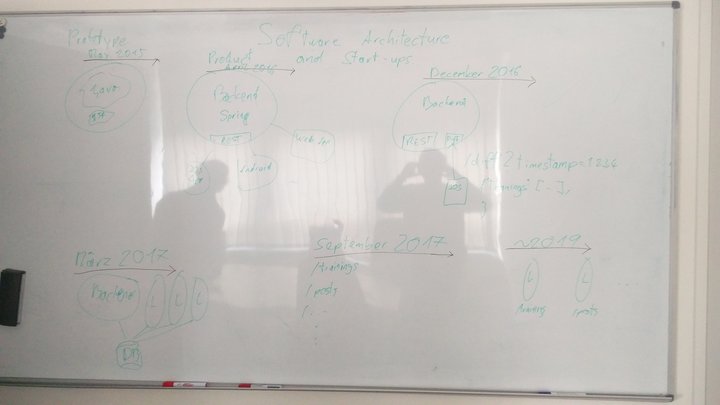 Software Architecture
and Start-ups
Prototype
Mar 2015
Java
Product
April 2016
Backend
Spring
REST
Android
Web App
December 2016
Backend
REST
/diff?timestamp=1234
"trainings" [...],
März 2017
Backend
L
L
L
DB
September 2017
/trainings
/posts
/...
~2019
L
L
...
trainings
/posts